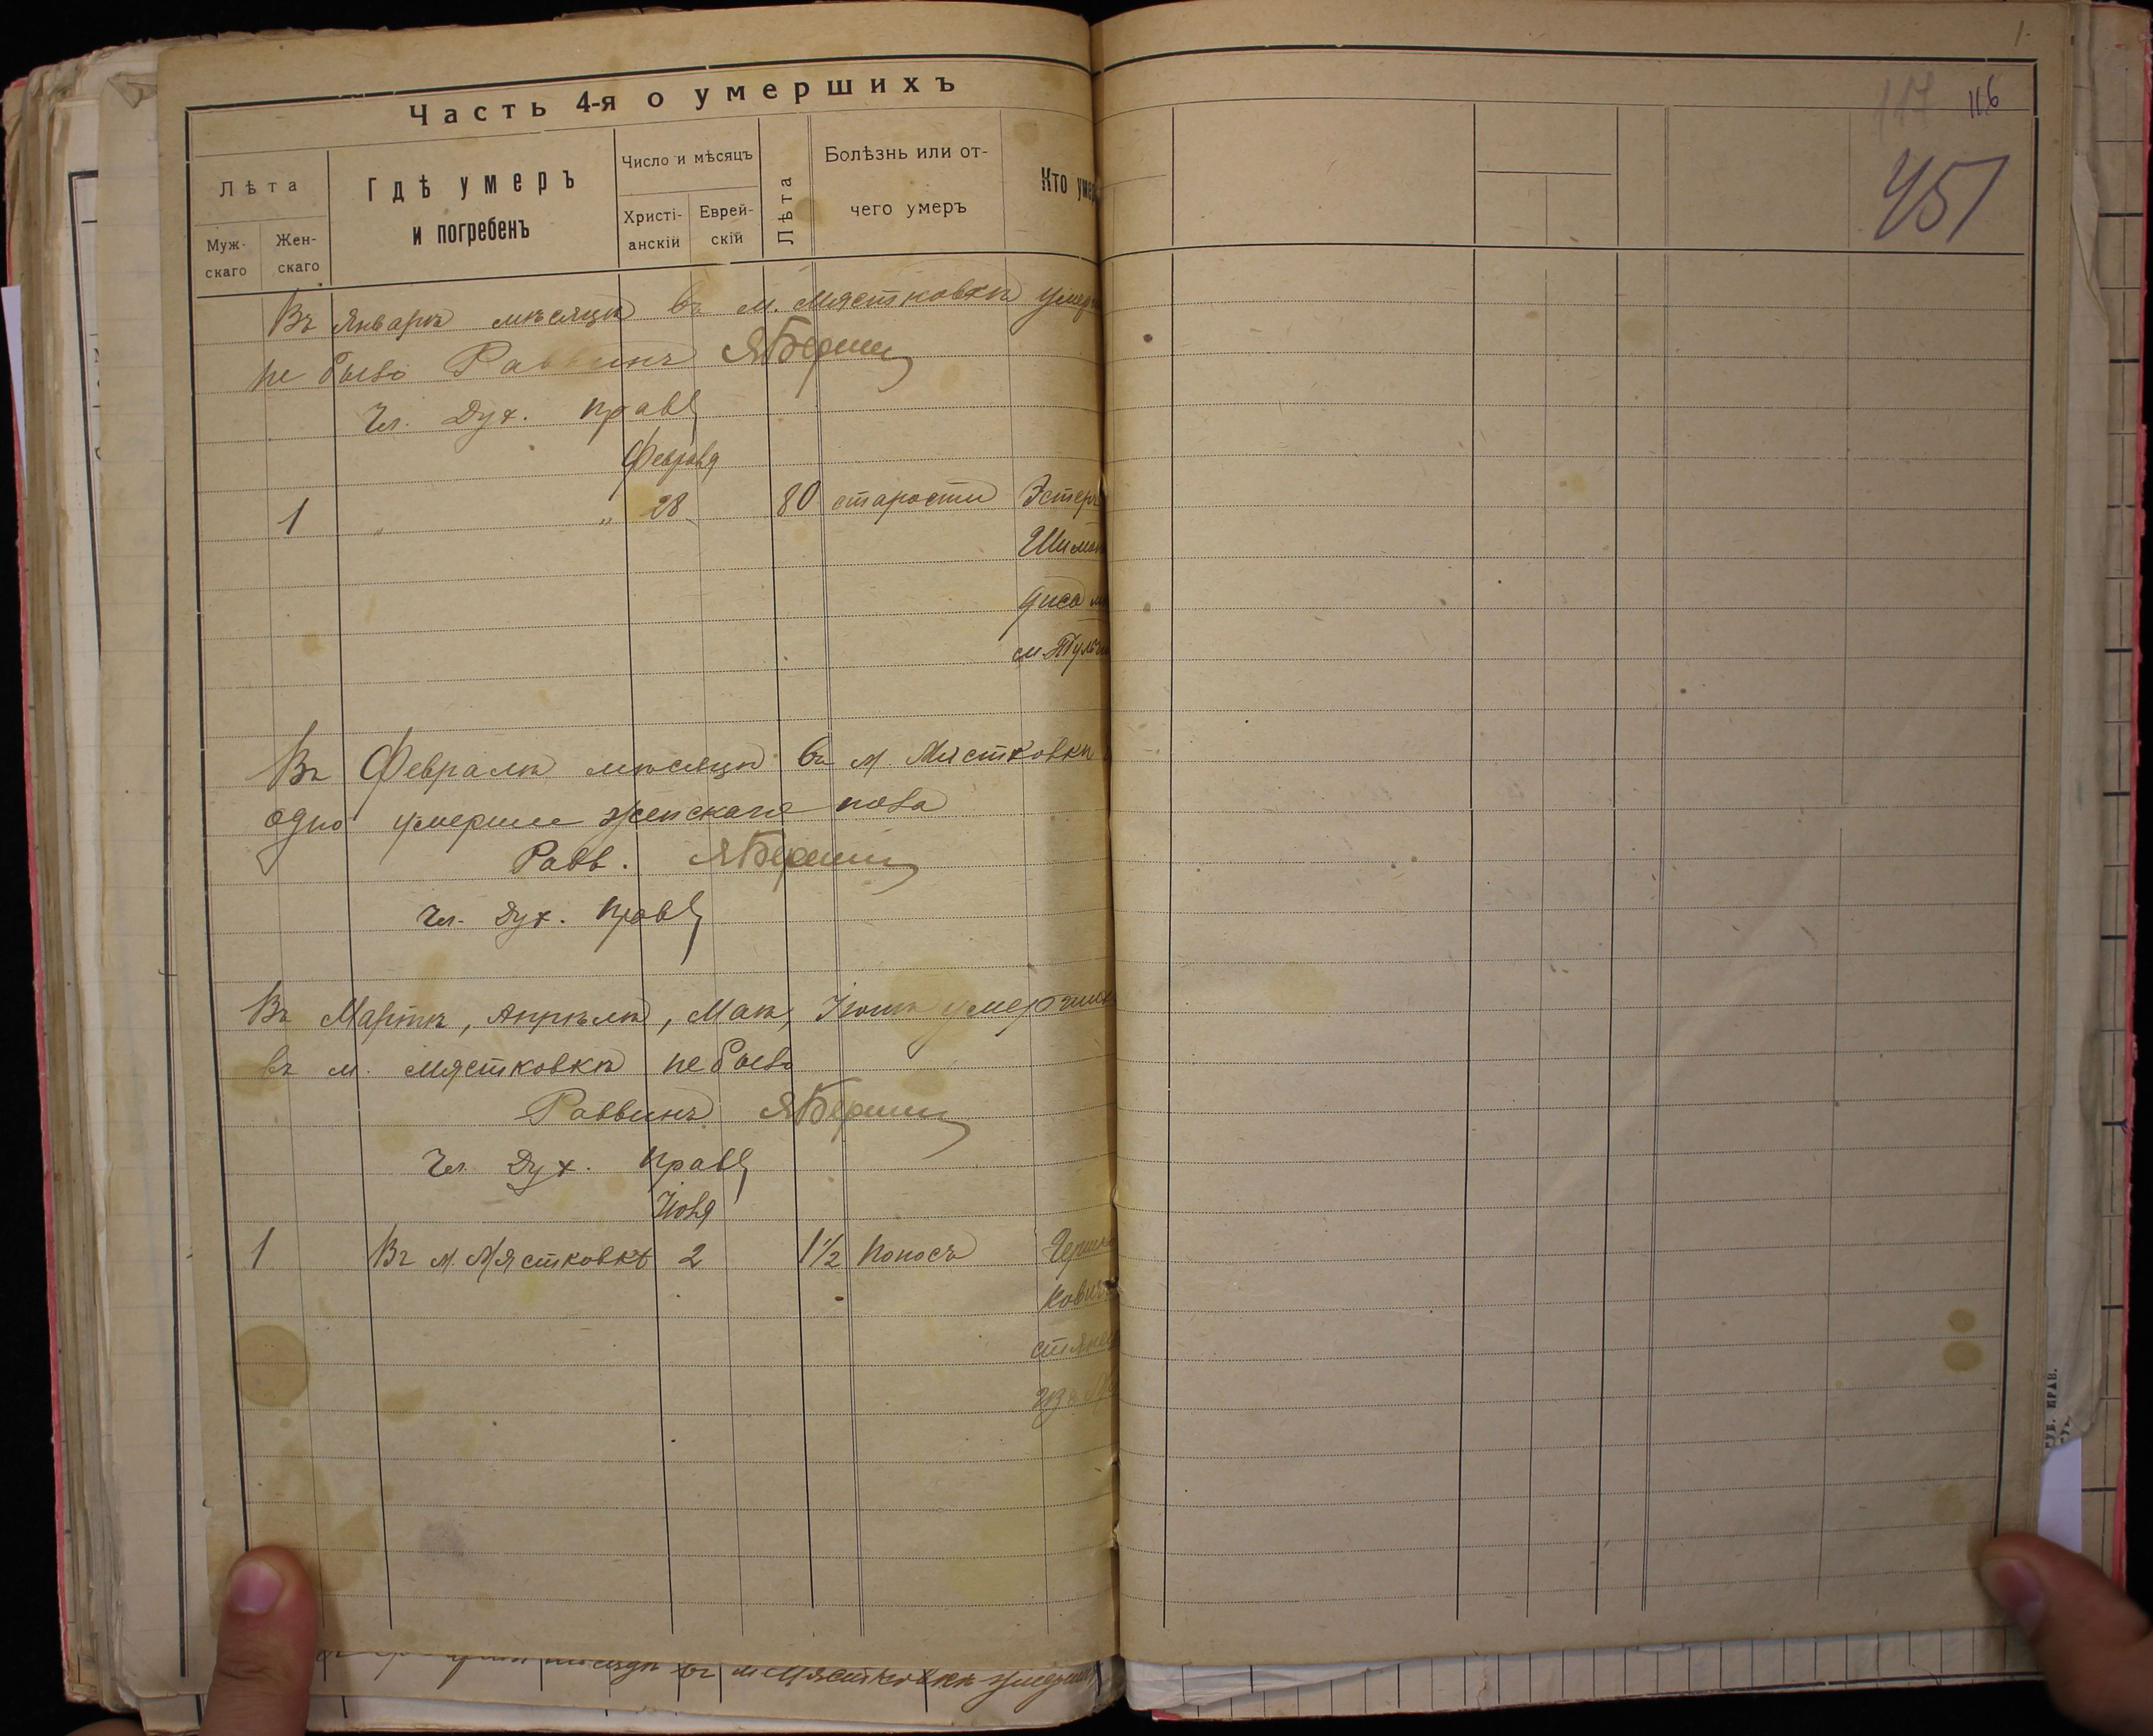 Часть 4-я о умершихъ
Лѣта
Муж-
скаго
Жен-
скаго
Гдѣ умеръ
и погребенъ
Число и мѣсяцъ
Христі-
анскій
Еврей-
скій
Лѣта
Болѣзнь или от-
чего умеръ
Кто умер
1
117 116
451
Въ Январѣ мѣсяцѣ въ м. Мястковкѣ умер
не было Раввинъ
Чл. Дух. Прав
Февраля
1 " " 28 80 старости Эстер
Шимо
м. Туль
Въ Февралѣ мѣсяцѣ въ м. Мястковкѣ
одно умерше женскаго пола
Равв.
Чл. Дух. Прав
Въ Мартѣ, Апрѣлѣ, Маѣ, Іюнѣ умерших
въ м. Мястковкѣ не было
Раввинъ
Чл. Дух. Прав
Іюля
1 Въ м. Мястковкѣ 2 1 1/2 Поносъ
кович
мѣсяцѣ въ м Мястковкѣ умерши
ГУБ. ПРАВ.